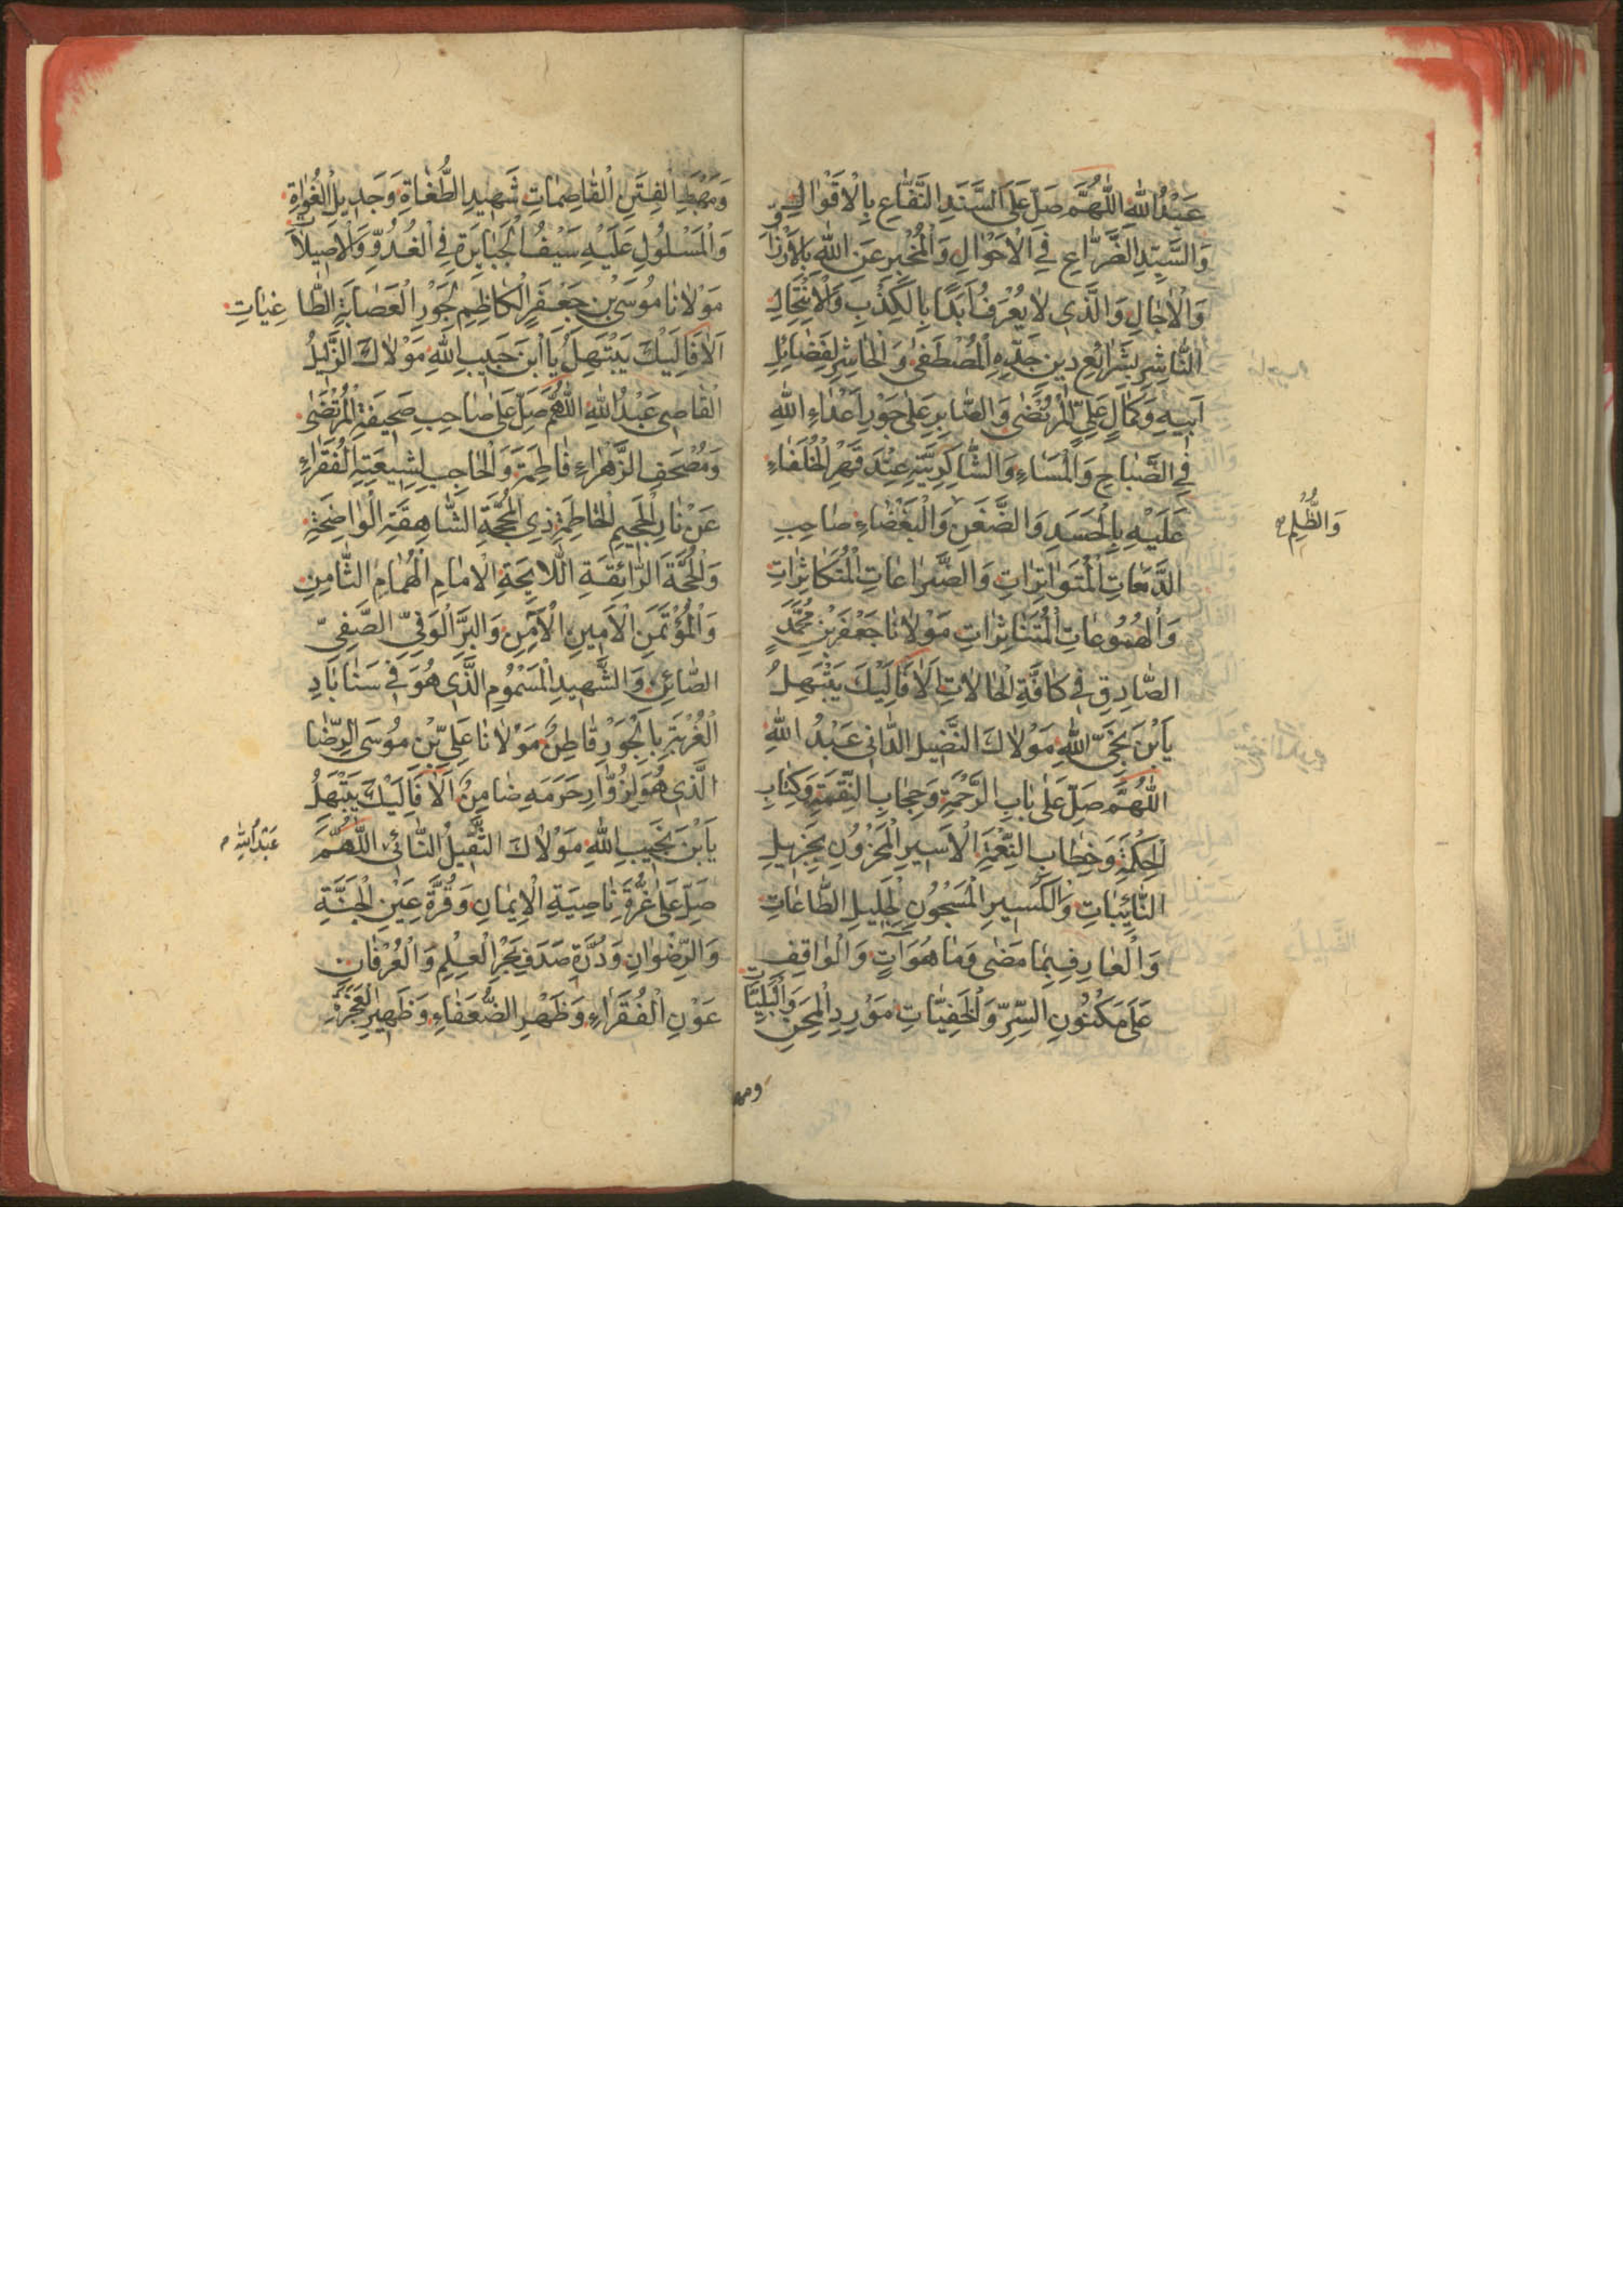 عَبْدُ اللّٰهِ اَللّٰهُمَّ صَلِّ عَلَى السَّنَدِ النَّفَّاعِ بِالْاَقْوٰالِ
وَالسَّيِّدِ الضَّرّٰاعِ فِي الْاَحْوٰالِ وَالْمُخْبِرِ عَنِ اللّٰهِ بِالْاَرْزٰاقِ
وَالْاٰجٰالِ وَالَّذِي لٰا يُعْرَفُ اَبَدًا بِالْكِذْبِ وَالْاِنْتِحٰالِ
النّٰاشِرِ بِشَرٰايِعِ دِينِ جَدِّهِ الْمُصْطَفٰى وَالْحٰاشِرِ لِفَضٰايِلِ
اَبِيهِ وَكَمٰالِ عَلِيٍّ الْمُرْتَضٰى وَالصّٰابِرِ عَلٰى جَوْرِ اَعْدٰاءِ اللّٰهِ
فِي الصَّبٰاحِ وَالْمَسٰاءِ وَالشّٰاكِرِ لِرَبِّهِ عِنْدَ قَهْرِ الْخُلَفٰاءِ
عَلَيْهِ بِالْحَسَدِ وَالضَّغَنِ وَالْبَغْضٰاءِ صٰاحِبِ
وَالظُّلْمِ
الدَّمَعٰاتِ الْمُتَوٰاتِرٰاتِ وَالضَّرٰاعٰاتِ الْمُتَكٰاثِرٰاتِ
وَالْهُمُوعٰاتِ الْمُتَنٰاثِرٰاتِ مَوْلٰانٰا جَعْفَرِ بْنِ مُحَمَّدٍ
الصّٰادِقِ فِي كٰافَّةِ الْحٰالٰاتِ اَلٰا فَاِلَيْكَ يَبْتَهِلُ
يَا بْنَ نَجِيِّ اللّٰهِ مَوْلٰاكَ الدّٰانِي عَبْدُ اللّٰهِ
اَللّٰهُمَّ صَلِّ عَلٰى بٰابِ الرَّحْمَةِ وَحِجٰابِ النِّقْمَةِ وَكِتٰابِ
الْحِكْمَةِ وَخِطٰابِ النِّعْمَةِ الْاَسِيرِ الْمَحْزُونِ بِجَزِيلِ
النّٰايِبٰاتِ وَالْكَسِيرِ الْمَسْجُونِ لِجَلِيلِ الطّٰاعٰاتِ
وَالْعٰارِفِ بِمٰا مَضٰى وَمٰا هُوَ اٰتٍ وَالْوٰاقِفِ
عَلٰى مَكْنُونِ السِّرِّ وَالْخَفِيّٰاتِ مَوْرِدِ الْمِحَنِ وَالْبَلِيّٰاتِ
ومهبط
وَمَهْبَطِ الْفِتَنِ الْقٰاصِمٰاتِ شَهِيدِ الطُّغٰاةِ وَجَدِيلِ الْغُوٰاةِ
وَالْمَسْلُولِ عَلَيْهِ سَيْفُ الْجَبٰابِرَةِ فِي الْغُدُوِّ وَالْاَصِيلٰاتِ
مَوْلٰانٰا مُوسَى بْنِ جَعْفَرٍ الْكٰاظِمِ لِجَوْرِ الْعِصٰابَةِ الطّٰاغِيٰاتِ
اَلٰا فَاِلَيْكَ يَبْتَهِلُ يَا ابْنَ حَبِيبِ اللّٰهِ مَوْلٰاكَ
الْقٰاصِي عَبْدُ اللّٰهِ اَللّٰهُمَّ صَلِّ عَلٰى صٰاحِبِ صَحِيفَةِ الْمُرْتَضٰى
وَمُصْحَفِ الزَّهْرٰاءِ فٰاطِمَةَ وَالْحٰاجِبِ لِشِيعَتِهِ الْفُقَرٰاءِ
عَنْ نٰارِ الْجَحِيمِ الْحٰاطِمَةِ ذِي الْمَحَجَّةِ الشّٰاهِقَةِ الْوٰاضِحَةِ
وَالْحُجَّةِ الرّٰائِقَةِ اللّٰايِحَةِ الْاِمٰامِ الْهُمٰامِ الثّٰامِنِ
وَالْمُؤْتَمَنِ الْاَمِينِ الْاٰمِنِ وَالْبَرِّ الْوَفِيِّ الصَّفِيِّ
الصّٰائِنِ وَالشَّهِيدِ الْمَسْمُومِ الَّذِي هُوَ فِي سَنٰابٰادِ
الْغُرْبَةِ بِالْجَوْرِ قٰاطِنٌ مَوْلٰانٰا عَلِيِّ بْنِ مُوسَى الرِّضٰا
الَّذِي هُوَ لِزُوّٰارِ حَرَمِهِ ضٰامِنٌ اَلٰا فَاِلَيْكَ يَبْتَهِلُ
يَا بْنَ نَجِيبِ اللّٰهِ مَوْلٰاكَ الثَّقِيلُ النّٰائِي اَللّٰهُمَّ
عَبْدُ اللّٰهِ
صَلِّ عَلٰى غُرَّةِ نٰاصِيَةِ الْاِيمٰانِ وَقُرَّةِ عَيْنِ الْجَنَّةِ
وَالرِّضْوٰانِ وَدُرَّةِ صَدَفِ بَحْرِ الْعِلْمِ وَالْعُرْفٰانِ
عَوْنِ الْفُقَرٰاءِ وَظَهْرِ الضُّعَفٰاءِ وَظَهِيرِ الْعَجَزَةِ